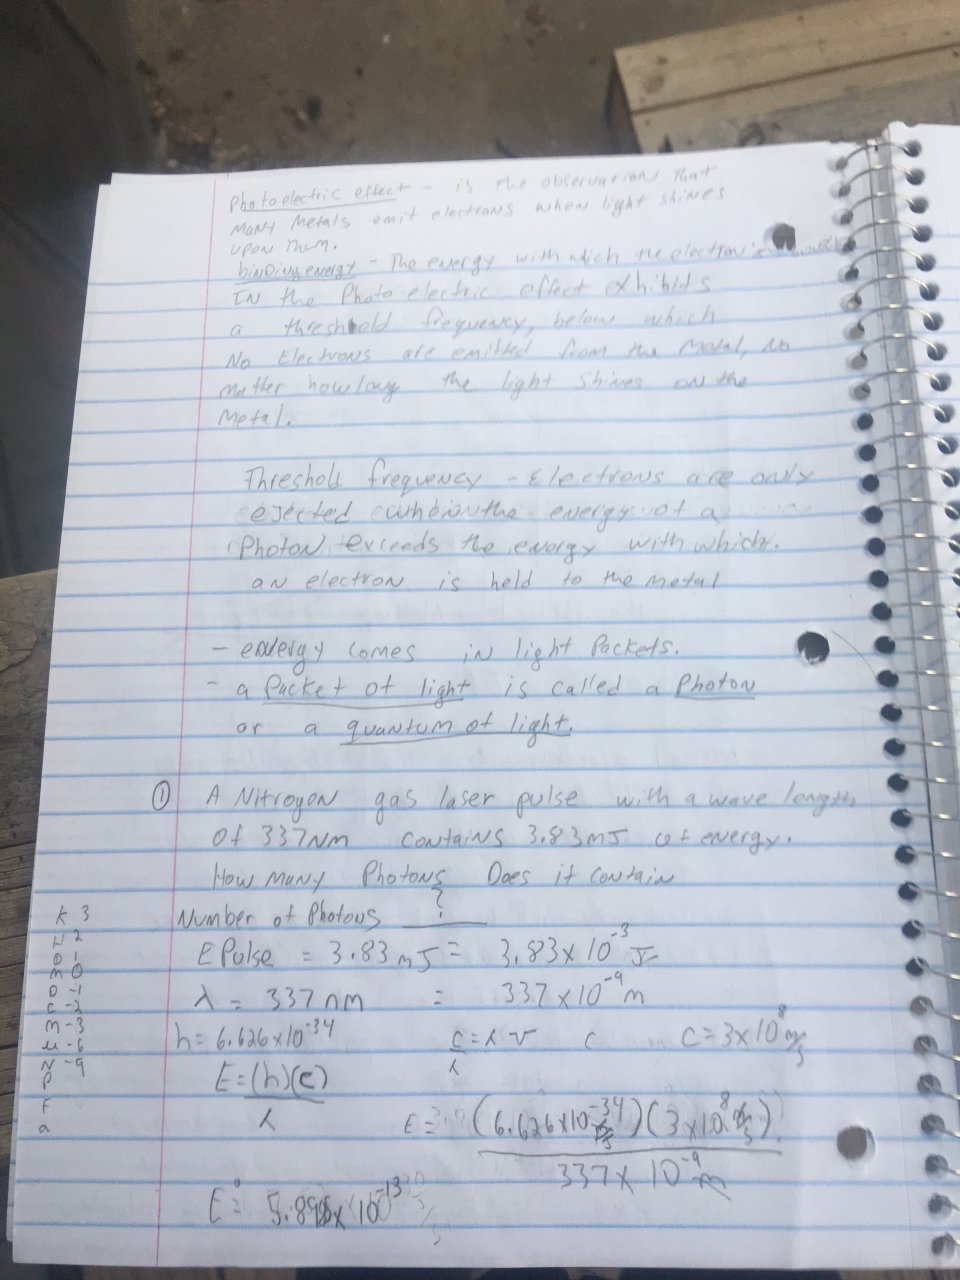 Photoelectric effect - is the observation that
many metals emit electrons when light shines
upon them.
binding energy - The energy with which the electron's
In the Photo electric effect exhibits
a threshold frequency, below which
No Electrons are emitted from the metal, no
matter how long the light shines on the
metal.
Threshold frequency - Electrons are only
ejected when the energy of a
Photon exceeds the energy with which
an electron is held to the metal
- energy comes in light Packets.
- a Packet of light is called a Photon
or a quantum of light.
① A Nitrogen gas laser pulse with a wave length
of 337nm contains 3.83mJ of energy.
How many Photons Does it contain
Number of Photons ?
E Pulse = 3.83 mJ = 3.83 x 10⁻³ J
λ = 337 nm = 337 x 10⁻⁹ m
h = 6.626 x 10⁻³⁴ c = λ v c C = 3 x 10⁸ m/s
λ
E = (h)(c)
λ
E = (6.626 x 10⁻³⁴)(3 x 10⁸ m/s)
337 x 10⁻⁹ m
E = x 10⁻¹³
K 3
H 2
D 1
m 0
D -1
c -2
m -3
μ -6
N -9
P
F
a